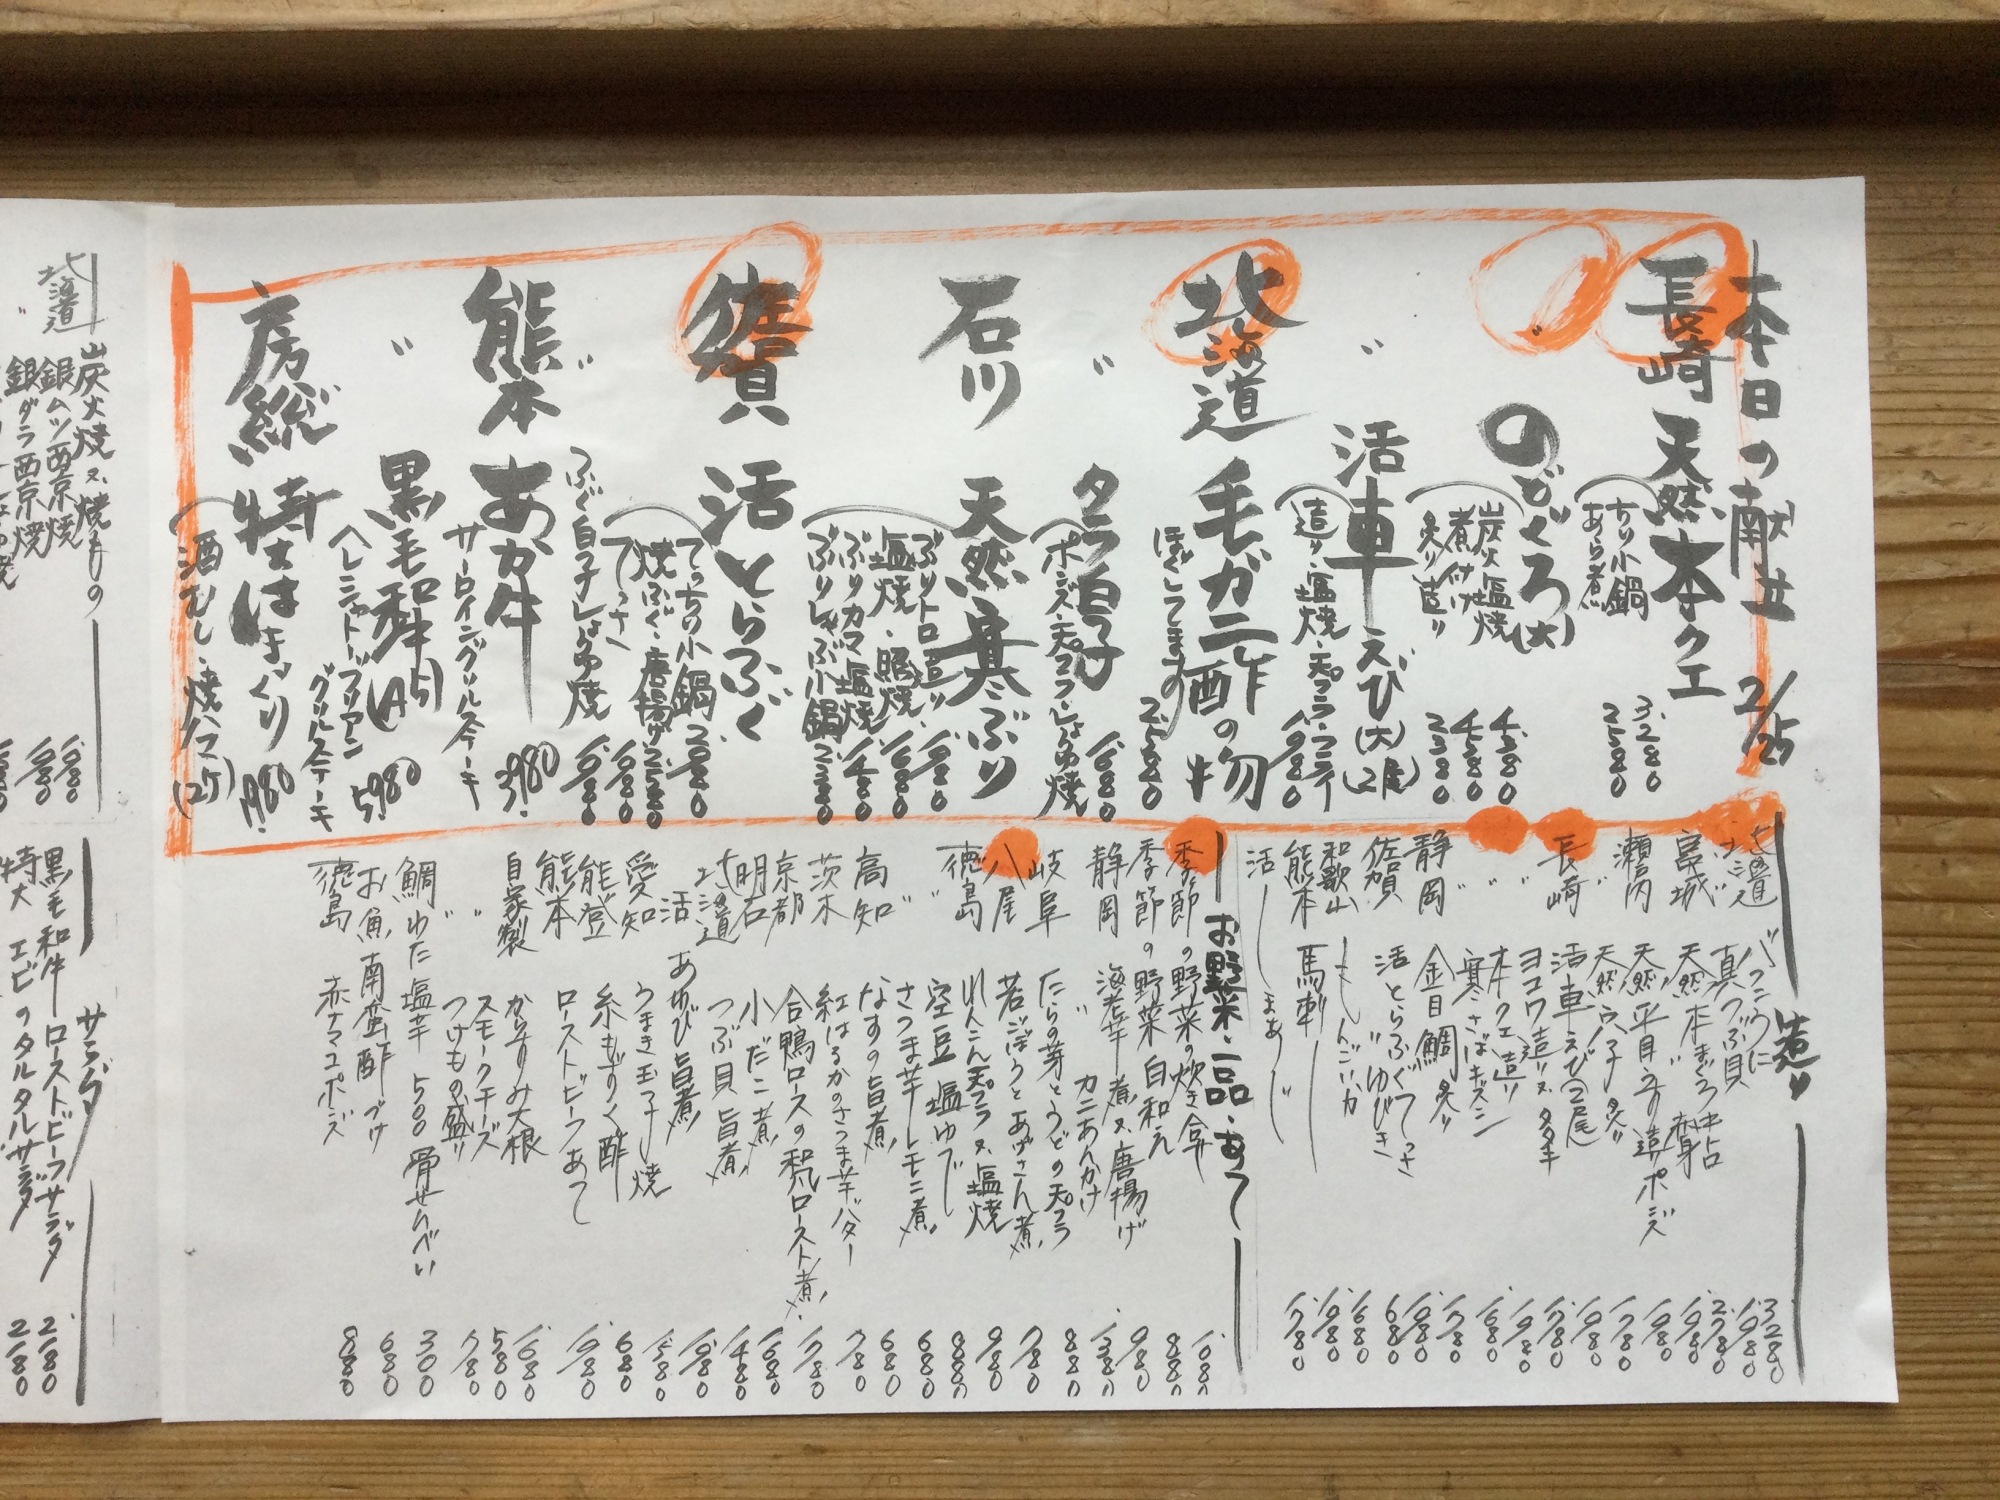 本日の献立 2/25
長崎 天然本クエ
ちり小鍋 3.280
あら煮 2.580
〃 のどぐろ(大)
炭火塩焼 4.380
煮付け 4.380
炙り造り 2.380
〃 活車えび(大)(2尾)
造り・塩焼・天プラ・フライ 1.980
北海道 毛ガニ酢の物
ほぐしてます 2.580
〃 タラ白子
ポンズ・天プラ・しょうゆ焼 1.680
石川 天然寒ぶり
ぶりトロ造り 1.980
塩焼・照焼 1.680
ぶりカマ塩焼 1.480
ぶりしゃぶ小鍋 2.380
佐賀 活とらふぐ
てっちり小鍋 2.980
焼ふぐ・唐揚げ 2.580
てっさ 1.680
〃 ふぐ白子しょうゆ焼 1.980
熊本 あか牛
サーロイングリルステーキ 3.980
〃 黒毛和牛(A5)
ヘレシャトーブリアン
グリルステーキ 5.980
房総 特大はまぐり
酒むし・焼ハマ(2ケ) 1.980
造り
北海道 バフンうに 3.280
〃 真つぶ貝 1.980
宮城 天然本まぐろ 中トロ 2.780
赤身 1.980
瀬戸内 天然平目 造り ポンズ 1.980
〃 天然ふぐ子 炙り 1.780
長崎 活車えび(2尾) 1.980
〃 ヨコワ造り又タタキ 1.780
〃 本クエ造り 1.980
〃 寒さばキズシ 1.680
静岡 金目鯛 炙り 1.780
佐賀 活とらふぐてっさ 1.980
〃 ゆびき 680
和歌山 もんごいか 1.680
熊本 馬刺 1.980
活 しまあじ 1.780
お野菜・一品・あて
季節の野菜の炊き合せ 1.080
季節の野菜 白和え 880
静岡 海老芋 煮又唐揚げ 980
〃 カニあんかけ 1.380
岐阜 たらの芽とうどの天プラ 880
八尾 若ごぼうとあげさん煮 780
徳島 れんこん天プラ又塩焼 980
〃 空豆 塩ゆで 880
さつま芋レモン煮 680
高知 なすの旨煮 680
茨木 紅はるかのさつま芋バター 780
京都 合鴨ロースの和風ロースト煮 1.780
明石 小だこ煮 1.680
北海道 つぶ貝 旨煮 1.480
活 あわび旨煮 1.980
愛知 うまき玉子焼 1.580
能登 糸もずく酢 680
熊本 ローストビーフあて 1.980
自家製 からすみ大根 1.680
〃 スモークチーズ 580
〃 つけもの盛り 780
鯛わた塩辛 500 骨せんべい 300
お魚南蛮酢づけ 680
徳島 赤ナマコポンズ 880
北海道
炭火焼又焼もの
銀ムツ西京焼 1.980
〃 銀ダラ西京焼 1.980
サラダ
黒毛和牛 ローストビーフサラダ 2.180
特大 エビのタルタルサラダ 2.180